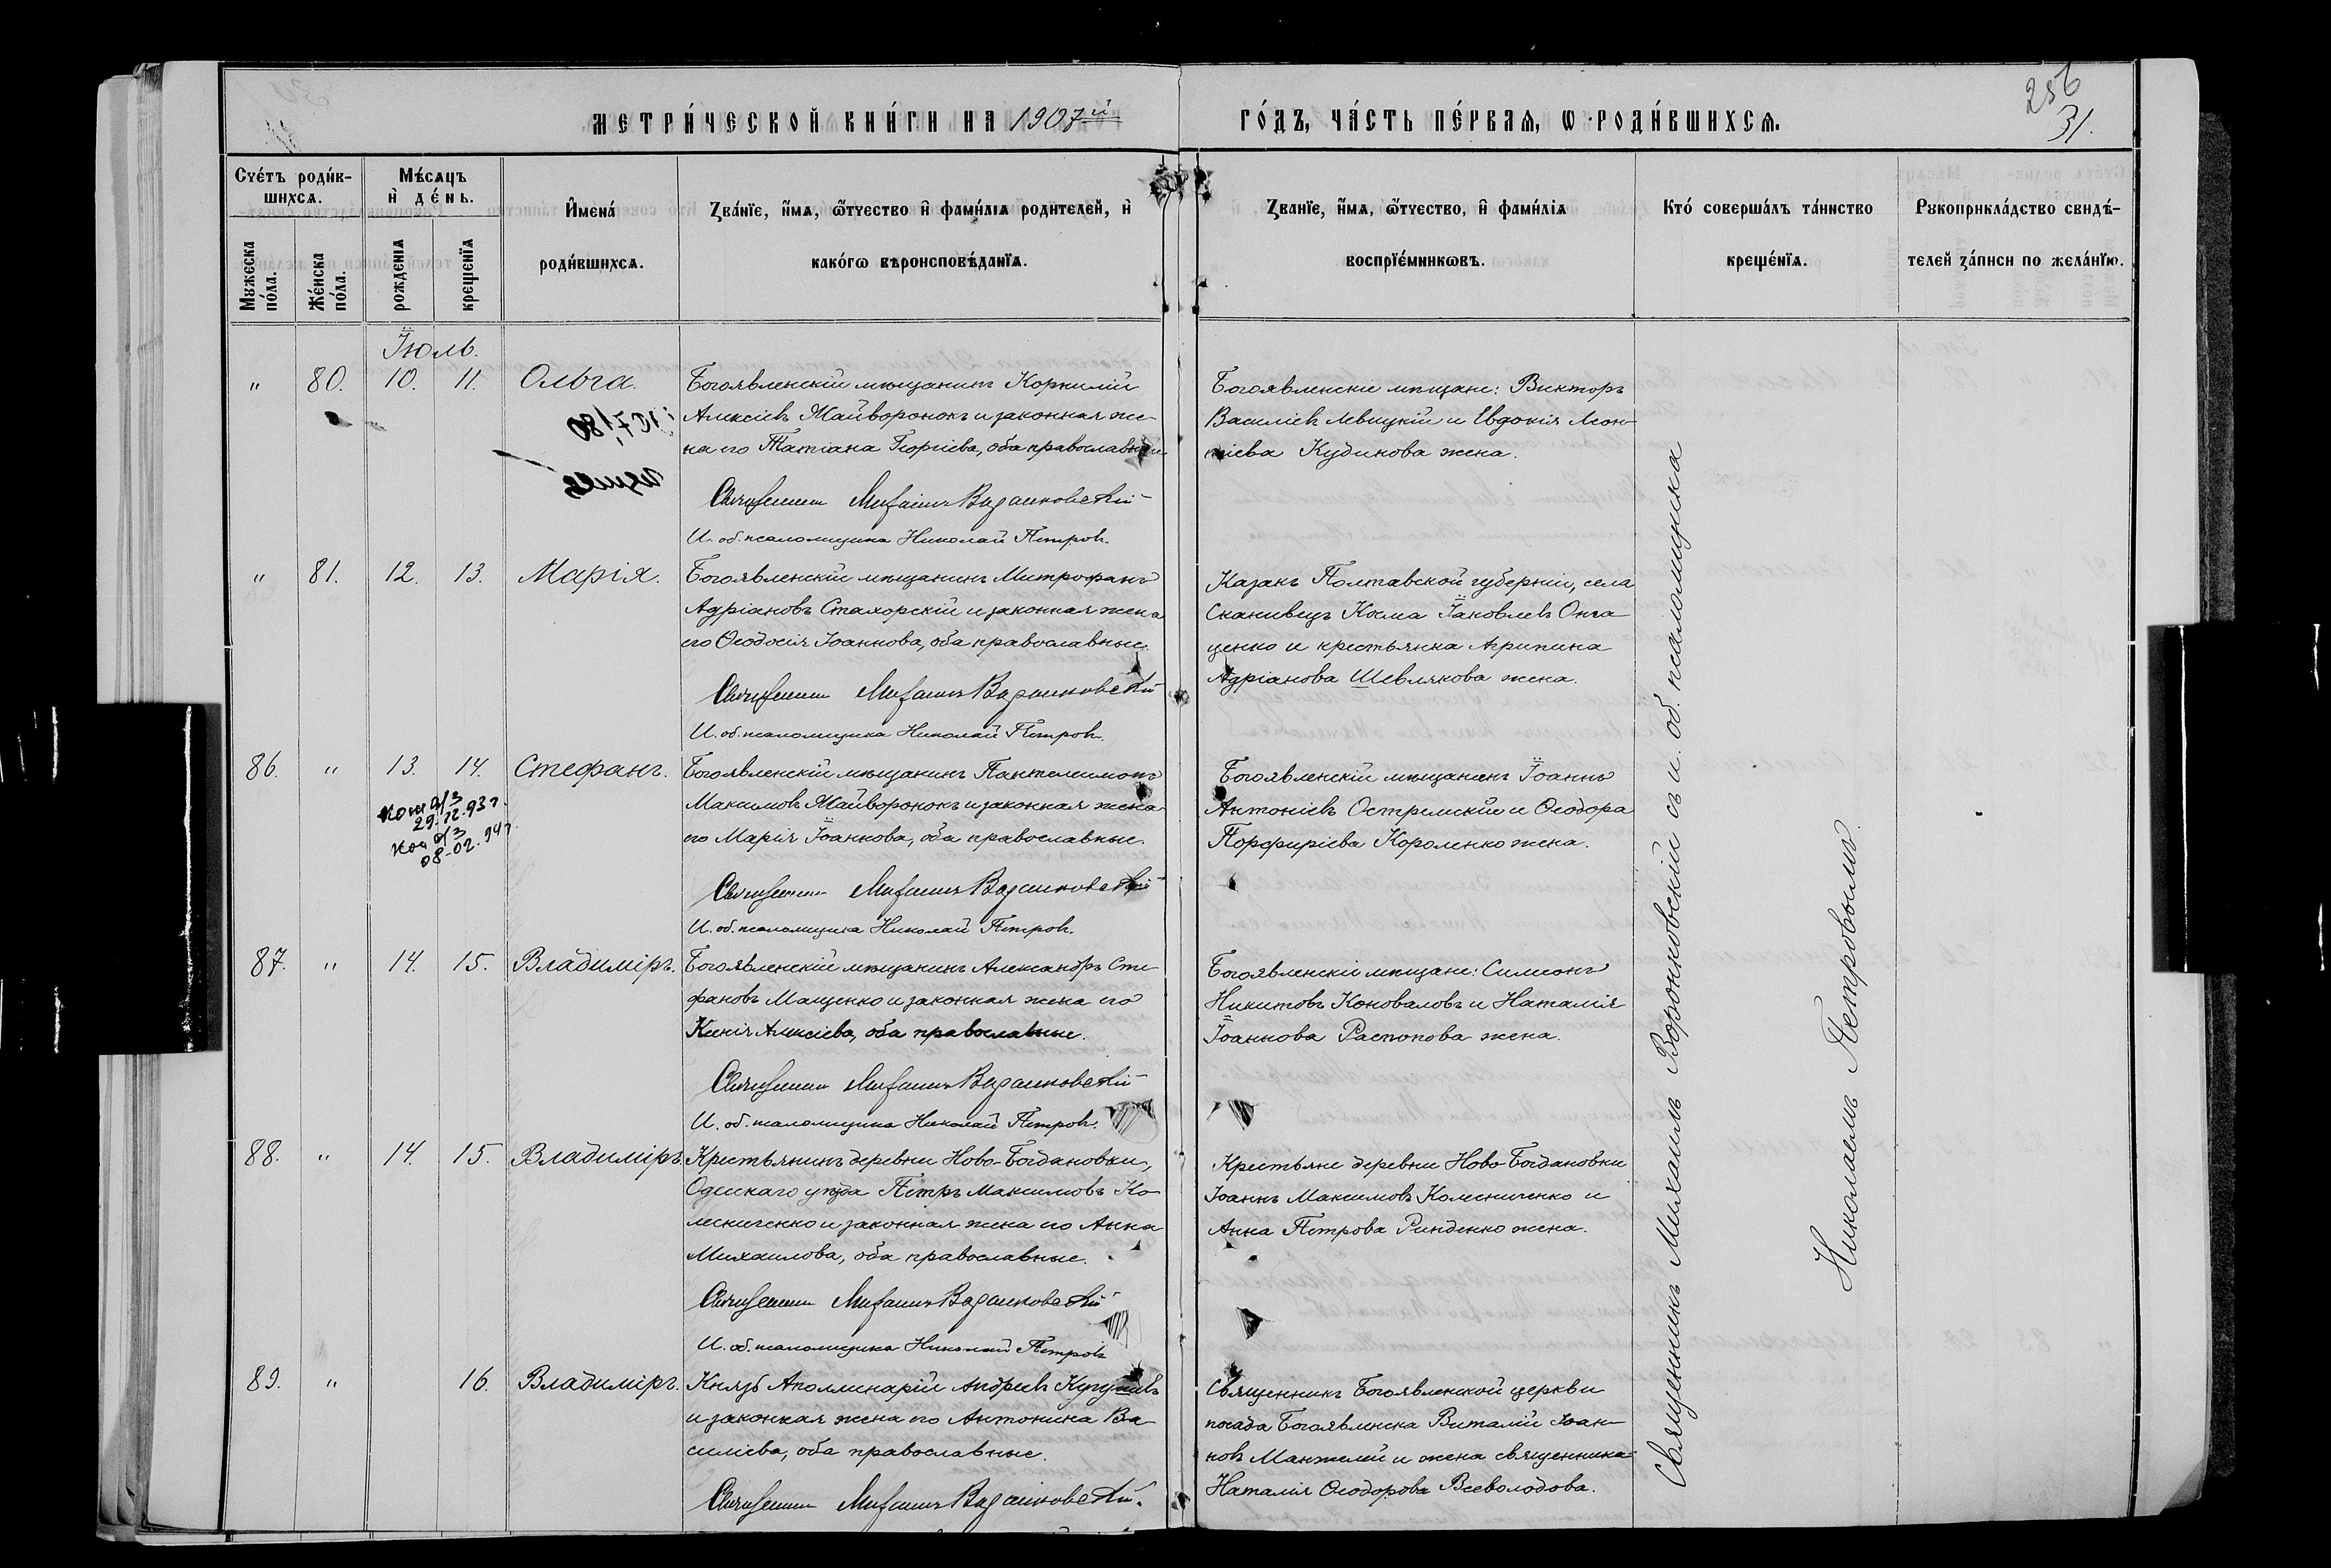 МЕТРИ́ЧЕСКОЙ КНИ́ГИ НА 1907й
ГО́ДЪ, ЧА́СТЬ ПЕ́РВАЯ, Ѡ РОДИ́ВШИХСЯ.
256
31.
Счéтъ роди́в-
шихся.
Мѣ́сяцъ
и҆ дéнь.
Мужеска
по́ла.
Же́нска
по́ла.
рожденія
крещенїя
И҆мена́
роди́вшихся.
Зва́нїе, и҆́мя, ѻ҆́тчество и҆ фами́лїя родителей, и҆
како́гѡ вѣроисповѣ́данїя.
Зва́нїе, и҆́мя, ѻ҆́тчество, и҆ фами́лїя
воспрїе́мникѡвъ.
Кто́ соверша́лъ та́инство
креще́нїя.
Рукоприкла́дство свидѣ́-
телей за́писи по жела́нїю.
Іюль.
" 80. 10. 11. Ольга.
Богоявленскій мѣщанинъ Корнилій
Алексіевъ Майворонокъ и законная же-
на его Татіана Георгіева, оба православные
Священникъ Михаилъ Воронковскій
И. об. псаломщика Николай Петровъ.
Богоявленскіе мѣщане: Викторъ
Василіевъ Левицкій и Евдокія Леон-
тіева Кудинова жена.
" 81. 12. 13. Марія.
Богоявленскій мѣщанинъ Митрофанъ
Адріановъ Стахорскій и законная жена
его Ѳеодосія Іоаннова, оба православные.
Священникъ Михаилъ Воронковскій
И. об. псаломщика Николай Петровъ.
Казакъ Полтавской губерніи, села
Сканивецъ Косма Іаковлевъ Онга
ценко и крестьянка Агрипина
Адріанова Шевлякова жена.
86. " 13. 14. Стефанъ.
29.12.93г.
08-02.94г
Богоявленскій мѣщанинъ Пантелеимонъ
Максимовъ Майворонокъ и законная жена
его Марія Іоаннова, оба православные.
Священникъ Михаилъ Воронковскій
И. об. псаломщика Николай Петровъ.
Богоявленскій мѣщанинъ Іоаннъ
Антоніевъ Остремскій и Ѳеодора
Порфиріева Короленко жена.
87. " 14. 15. Владиміръ.
Богоявленскій мѣщанинъ Александръ Сте
фановъ Мащенко и законная жена его
Ксенія Алексіева, оба православные.
Священникъ Михаилъ Воронковскій
И. об. псаломщика Николай Петровъ.
Богоявленскіе мѣщане: Симеонъ
Никитовъ Коноваловъ и Наталія
Іоаннова Распопова жена.
88. " 14. 15. Владиміръ.
Крестьянинъ деревни Ново-Богдановки,
Одесскаго уѣзда Петръ Максимовъ Ко
лесниченко и законная жена его Анна
Михаилова, оба православные.
Священникъ Михаилъ Воронковскій
И. об. псаломщика Николай Петровъ
Крестьяне деревни Ново-Богдановки
Іоаннъ Максимовъ Колесниченко и
Анна Петрова Ринденко жена.
89. " 16. Владиміръ.
Князь Аполлинарій Андреевъ
и законная жена его Антонина Ва
силіева, оба православные.
Священникъ Михаилъ Воронковскій.
Священникъ Богоявленской церкви
посада Богоявленска Виталій Іоан-
новъ Манжелей и жена священника
Наталія Ѳеодорова Всеволодова.
Священникъ Михаилъ Воронковскій съ и. об. псаломщика
Николаемъ Петровымъ.